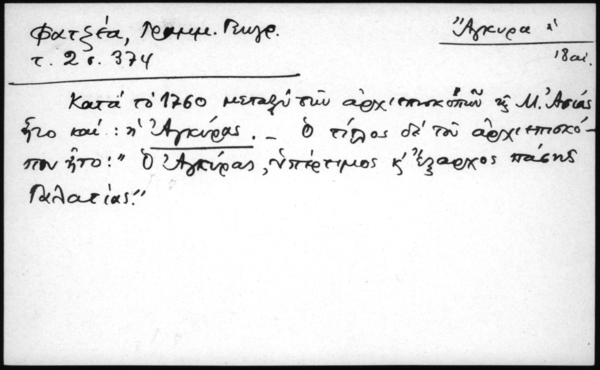 Φατζέα, Γραμμ. Γεωγρ.
τ. 2 σ. 374
Ἄγκυρα ἡ
18 αἰ.
Κατά τό 1760 μεταξύ τῶν ἀρχιεπισκοπῶν τῆς Μ. Ἀσίας
ἦτο καί: ἡ Ἀγκύρας. — Ὁ τίτλος δέ τοῦ ἀρχιεπισκό-
που ἦτο: "Ὁ Ἀγκύρας, ὑπέρτιμος κ' ἔξαρχος πάσης
Γαλατίας."